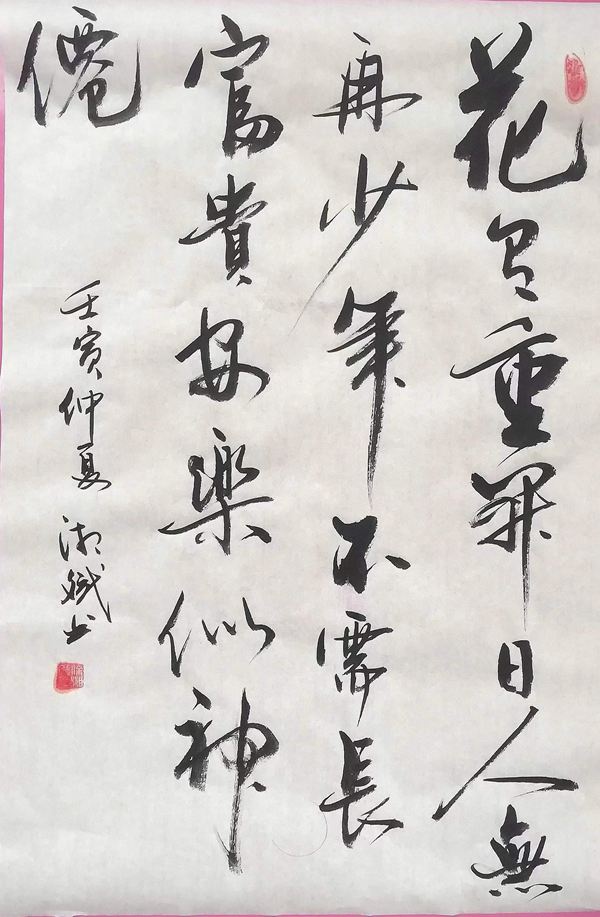 花有重開日人無
再少年不需長
富貴安樂似神
僊
壬寅仲夏湘斌书